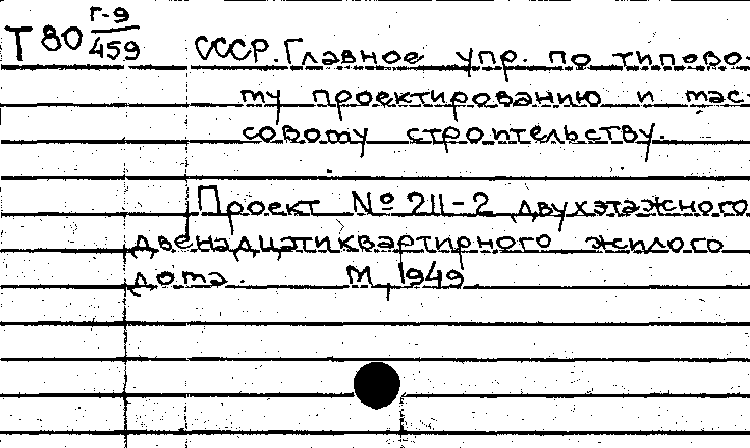 Т 80 Г-9/459
СССР. Главное упр. по типово-
му проектированию и мас-
совому строительству.
Проект № 211-2 двухэтажного
двенадцатиквартирного жилого
дома. М, 1949